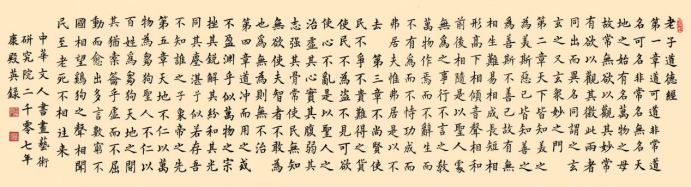 老子道德經
第一章道可道非常道
名可名非常名無名天
地之始有名萬物之母
故常無欲以觀其妙常
有欲以觀其徼此兩者
同出而異名同謂之玄
玄之又玄衆妙之門
第二章天下皆知美之
為美斯惡已皆知善之
為善斯不善已故有無
相生難易相成長短相
形高下相傾音聲相和
前後相隨是以聖人處
無為之事行不言之教
萬物作焉而不辭生而
不有為而不恃功成而
弗居夫惟弗居是以不
去 第三章不尚賢使
民不爭不貴難得之貨
使民不為盜不見可欲
使心不亂是以聖人之
治虛其心實其腹弱其
志強其骨常使民無知
無欲使夫智者不敢為
也為無為則無不治
第四章道沖而用之或
不盈淵乎似萬物之宗
挫其銳解其紛和其光
同其塵湛乎似若存吾
不知誰之子象帝之先
第五章天地不仁以萬
物為芻狗聖人不仁以
百姓為芻狗天地之間
其猶橐龠乎虛而不屈
動而愈出多言數窮不
國相望雞狗之聲相聞
民至老死不相往來
中華文人書畫藝術
研究院二千零七年
康殿英錄